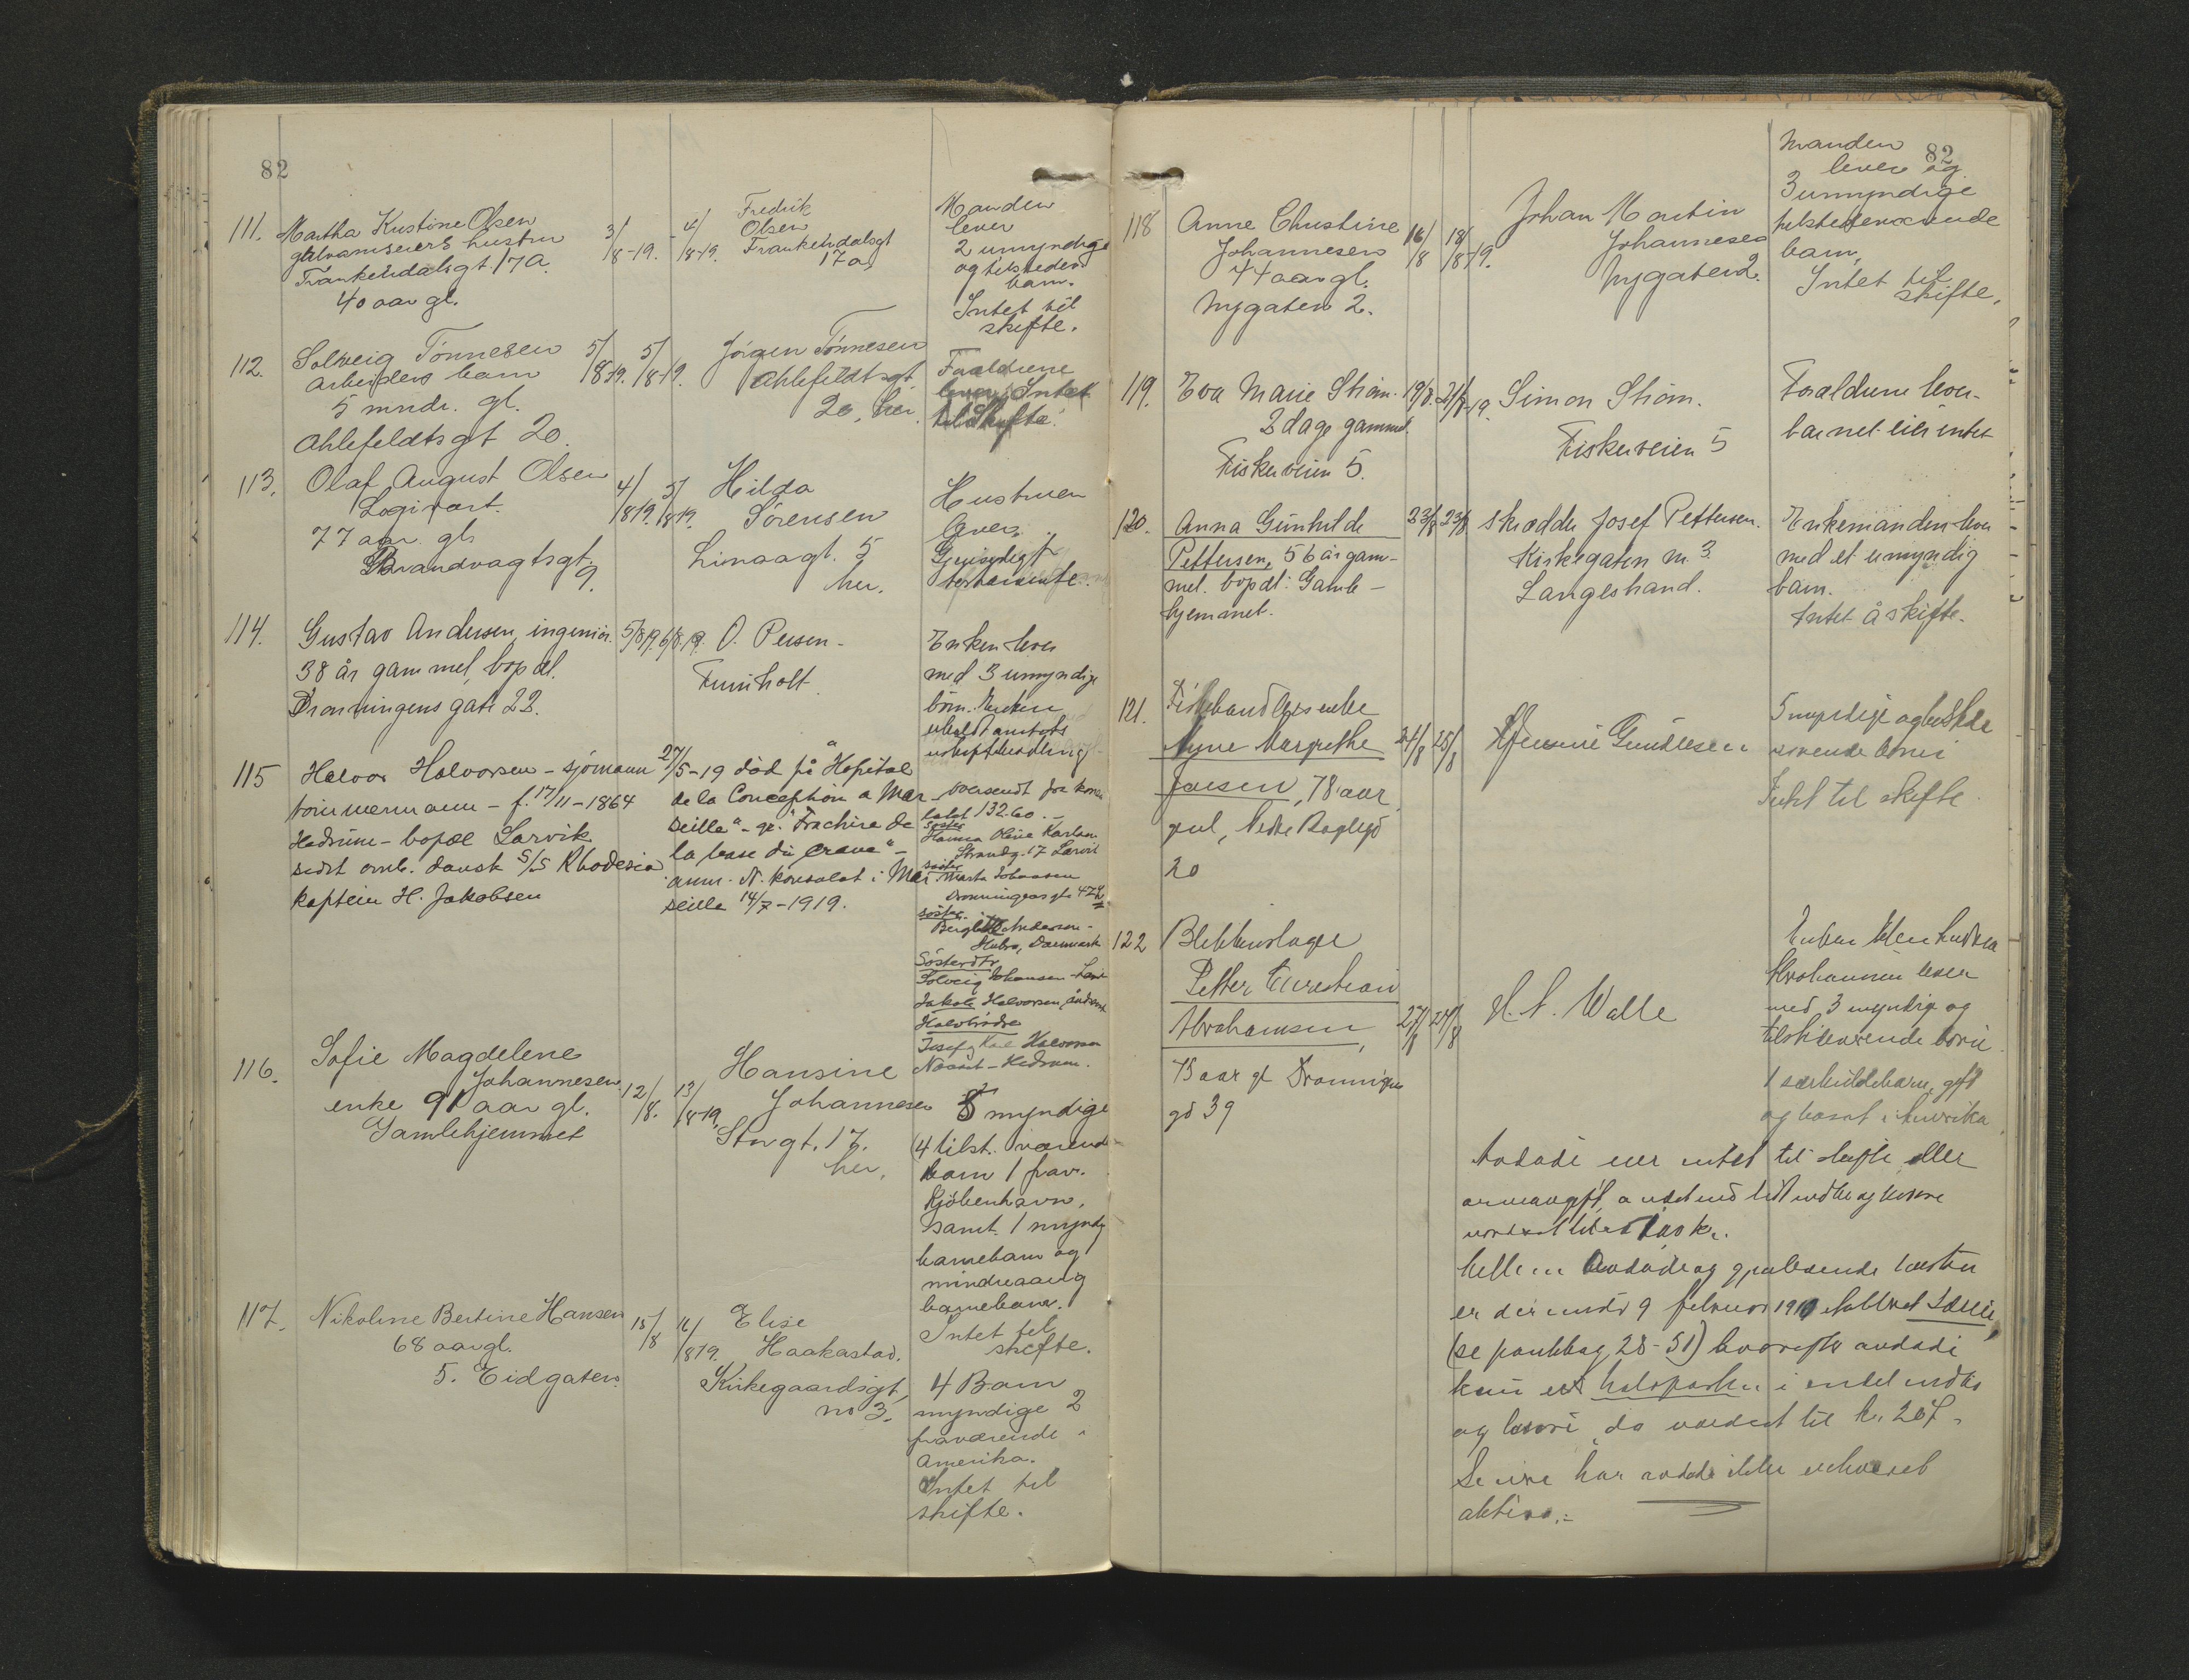 82
111. Martha Kristine Olsen
galvaniseiers hustru
Frankendalsgt. 17A.
40 aar gl.
3/8-19. - 4/8-19.
Fredrik
Olsen
Frankendalsgt
17a
Manden
lever
2 umyndige
og tilsteder
barn.
Intet til
skifte.
112. Solveig Tönnesen
arbeiders barn
5 mndr. gl.
Ahlefeldtsgt 20.
5/8-19. 5/8-19.
Jörgen Tönnesen
Ahlefeldtsgt.
20, her.
Forældrene
lever. Intet
til Skifte.
113. Olaf August Olsen
Logivært.
77 aar gl.
Brandvagtsgt.
9.
4/8 19. 5/8 19.
Hilda
Sörensen
Limaagt. 5
her.
Hustruen
lever.
114. Gustav Andersen, ingeniör.
38 år gammel, bop dl.
Dronningens gate 22.
5/8 19. 6/8 19.
O. Persen -
Furuholt.
Enken lever
med 3 umyndige
börn. Enken
115 Halvor Halvorsen - sjömann
tömmermann - f. 17/11-1864
Hedrum - bopæl Larvik
sidst omb. dansk S/S Rhodesia
kaptein H. Jakobsen
27/5-19 död på "Hopital
de la Conception a Mar
seille" - gr. "Trachive de
la base du crave" -
anm. N. konsulat i Mar
seille 14/7-1919.
oversendt fra konsu
latet 132.60.-
söster
Hanna Olsine Karlsen
Strandg. 17 Larvik
söster Marta Johansen
Dronningens gt. 47
söster.
Andersen -
Hobro, Danmark
Sösterdtr
Solveig Johansen - Larvik
Jakob Halvorsen,
Halvbrödre
Josef og Karl Halvorsen
Hedrum.
116. Sofie Magdelene
Johannesen.
enke 91 aar gl.
Gamlehjemmet
12/8. 13/8-19.
Hansine
Johannesen
Storgt. 17.
her.
5 myndige
(4 tilst. værende
barn 1 frav.
Kjöbenhavn.
samt 1 myndig
barnebarn og
mindreaarig
barnebarn.
Intet til
skifte.
117. Nikoline Bertine Hansen
68 aar gl.
5. Eidgaten.
15/8 16/8 19.
Elise
Haakastad.
Kirkegaardsgt,
no 3.
4 Barn
myndige 2
fraværende i
Amerika.
Intet til
skifte.
82
118 Anne Christine
Johannesen
44 aar gl.
Nygaten 2.
16/8 18/8-19.
Johan Martin
Johannesen
Nygaten 2.
Manden
lever og
3 umyndige
tilstedeværende
barn,
Intet til
skifte.
119. Eva Marie Ström.
2 dage gammel.
Fiskerveien 5.
19/8. 21/8-19.
Simon Ström.
Fiskerveien 5
Forældrene lever.
barnet eier intet
120. Anna Gunhilde
Pettersen, 56 år gam-
mel. bop dl: Gamle-
hjemmet.
23/8 23/8
skrædder Josef Pettersen.
Kirkegaten nr. 3
Langestrand.
Enkemanden lever
med et umyndig
barn.
Intet å skifte.
121. Fiskehandlers enke
Margrethe
78 aar
Nedre
20
24/8 25/8
Gundersen
5 myndige og tilstede
værende börn
Intet til skifte.
122 Blikkenslager
Petter Christian
Abrahamsen,
75 aar gl Dronningens
gt 39
27/8 27/8
H. A. Walle
Enken
Abrahamsen lever
med 3 myndige og
tilstedeværende börn.
1 særkuldsbarn, gift
og bosat i Amerika.
Avdöde eier intet til skifte eller
arveavgift, andet end lidt indbo og lösöre
Mellem avdöde og gjenlevende hustru
er der under 9 februar
(se pantebog 28-51) hvorefter avdöde
kun er i endel indbo
og lösöre, da vurdert til kr. 267.-
Senere har avdöde ikke erhvervet
aktiva.=